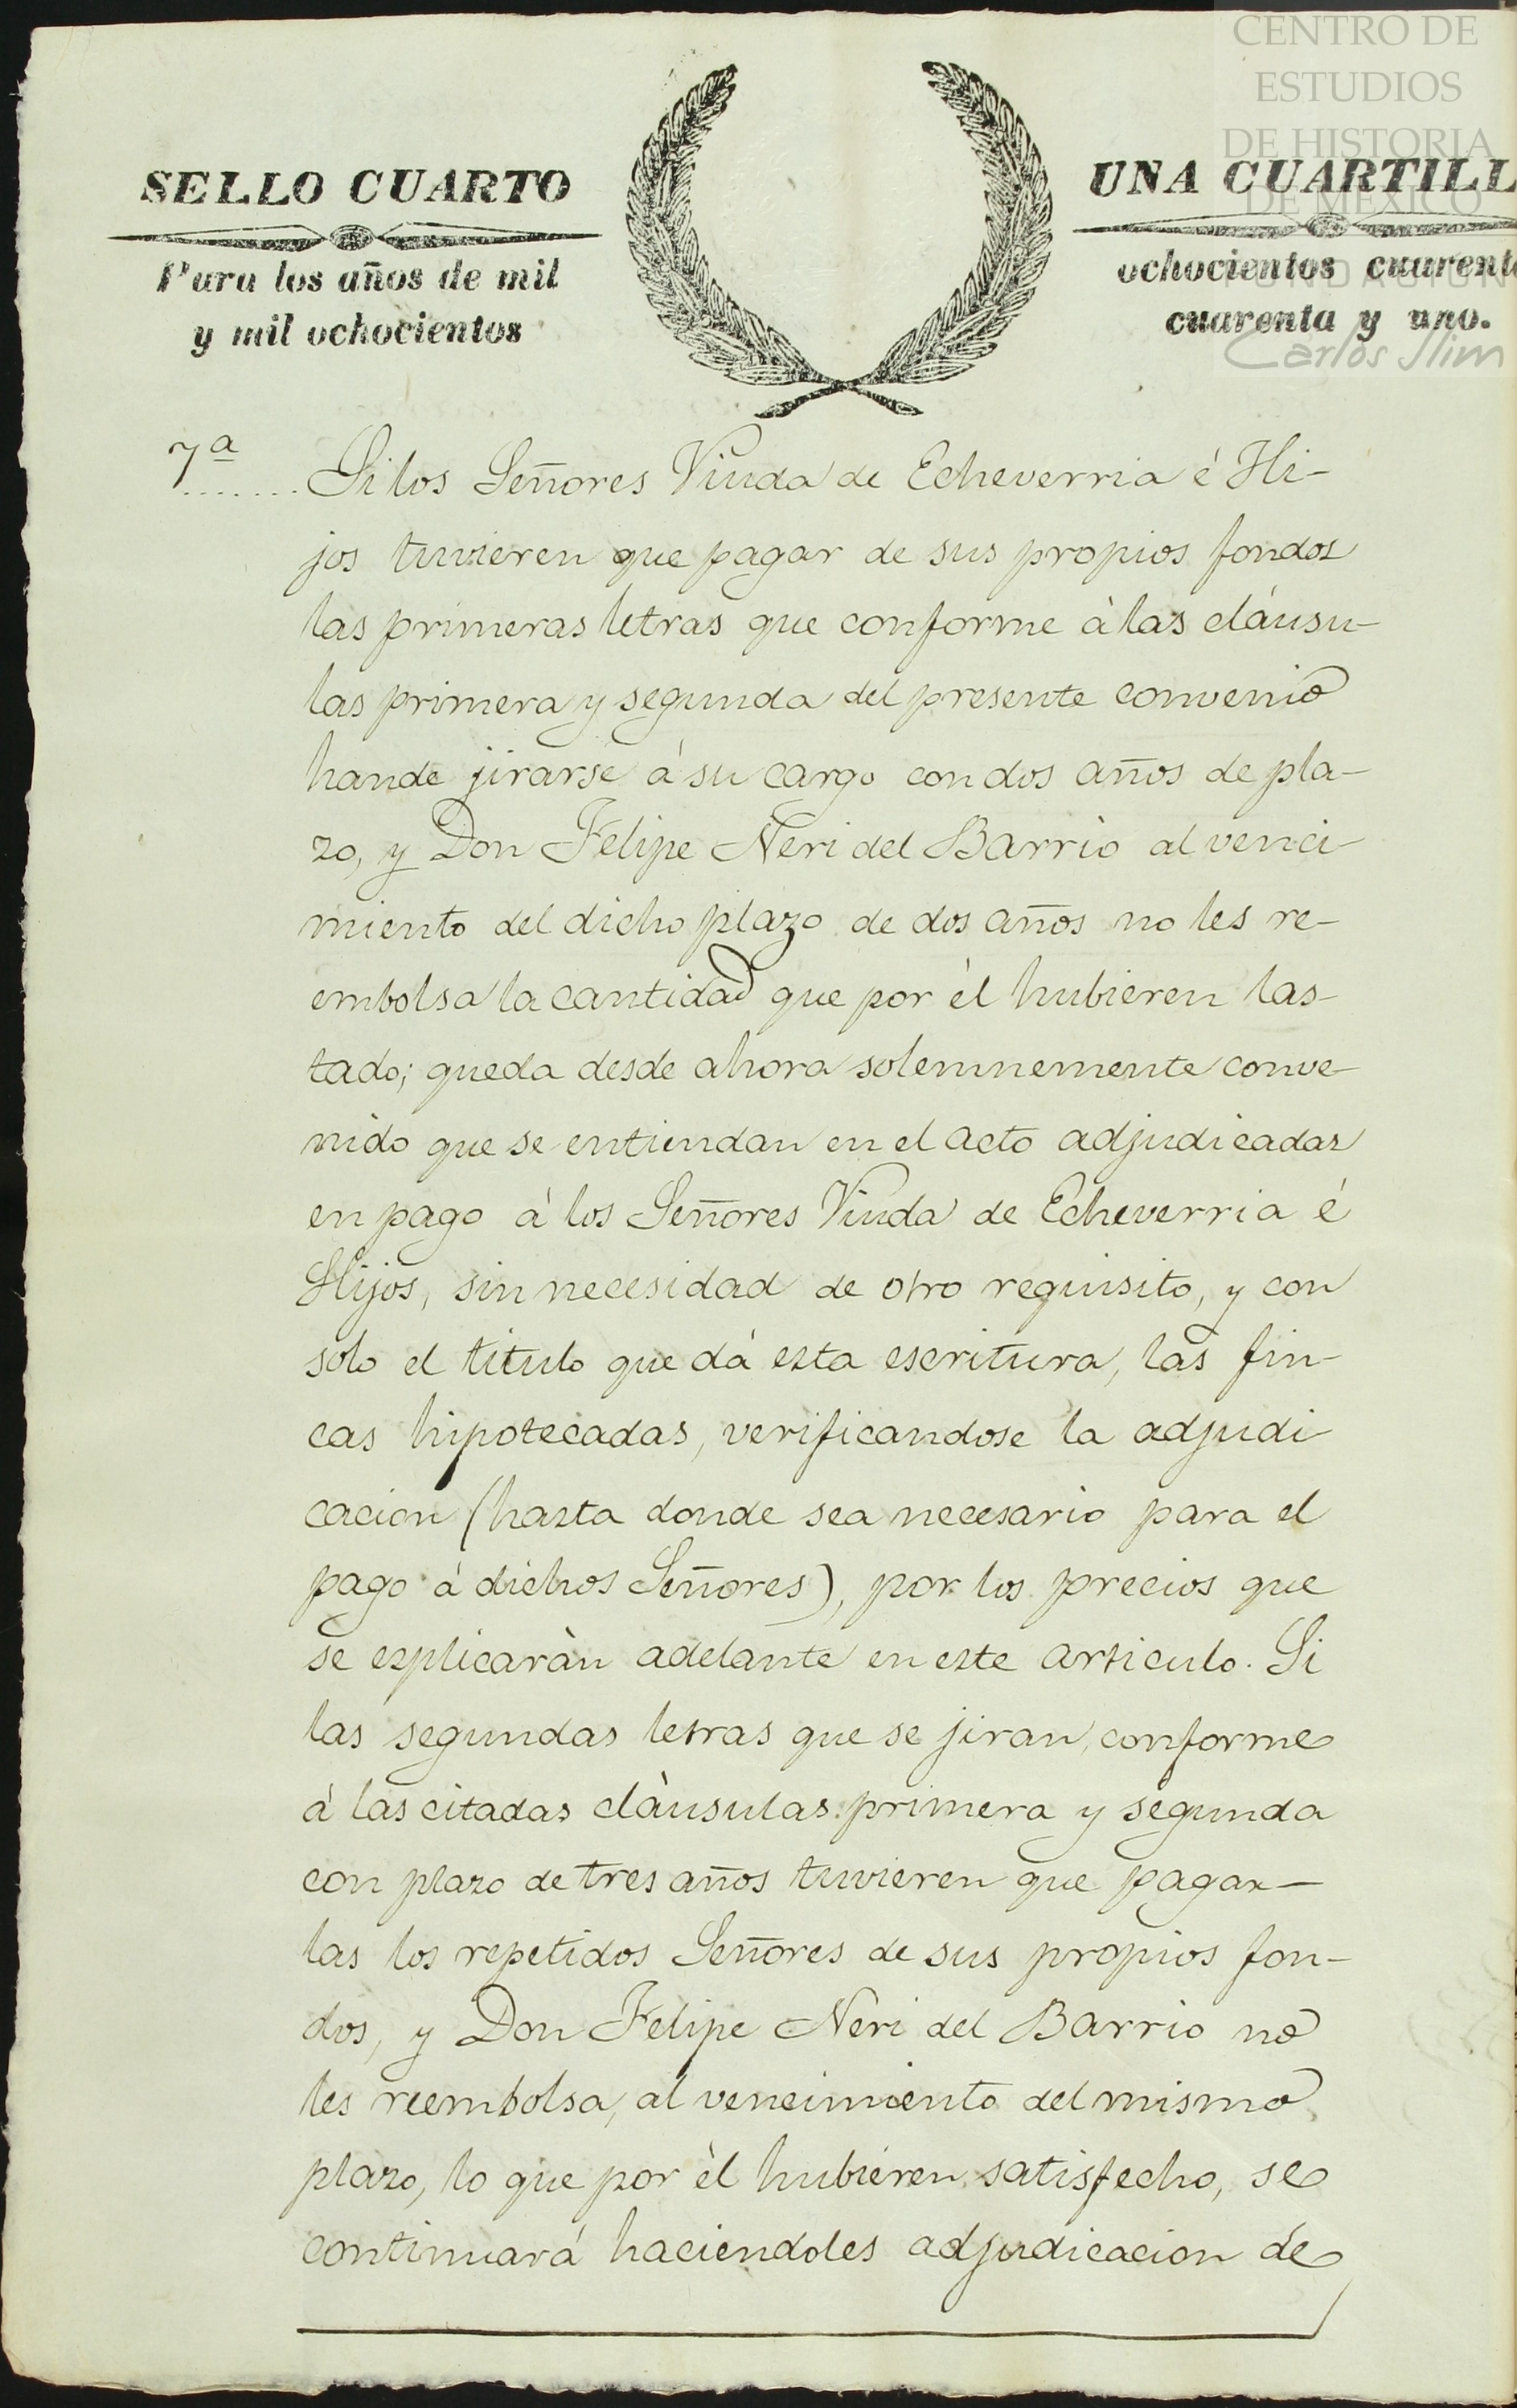 CENTRO DE
ESTUDIOS
DE HISTORIA
DE MÉXICO
FUNDACIÓN
Carlos Slim
SELLO CUARTO
UNA CUARTILL
Para los años de mil
ochocientos cuarent
y mil ochocientos
cuarenta y uno.
7ª ....... Si los Señores Viuda de Echeverria é Hi-
jos tuvieren que pagar de sus propios fondos
las primeras letras que conforme à las cláusu-
las primera y segunda del presente convenio
hande jirarse á su cargo con dos años de pla-
zo, y Don Felipe Neri del Barrio al venci-
miento del dicho plazo de dos años no les re-
embolsa la cantidad que por èl hubieren las-
tado; queda desde ahora solemnemente conve-
nido que se entiendan en el acto adjudicadas
en pago à los Señores Viuda de Echeverria é
Hijos, sin necesidad de otro requisito, y con
solo el titulo que dá esta escritura, las fin-
cas hipotecadas, verificandose la adjudi-
cacion (hasta donde sea necesario para el
pago á dichos Señores), por los precios que
se explicaràn adelante en este articulo. Si
las segundas letras que se jiran, conforme
á las citadas clàusulas primera y segunda
con plazo de tres años tuvieren que pagar-
las los repetidos Señores de sus propios fon-
dos, y Don Felipe Neri del Barrio no
les reembolsa, al vencimiento del mismo
plazo, lo que por èl hubieren satisfecho, se
continuará haciendoles adjudicacion de